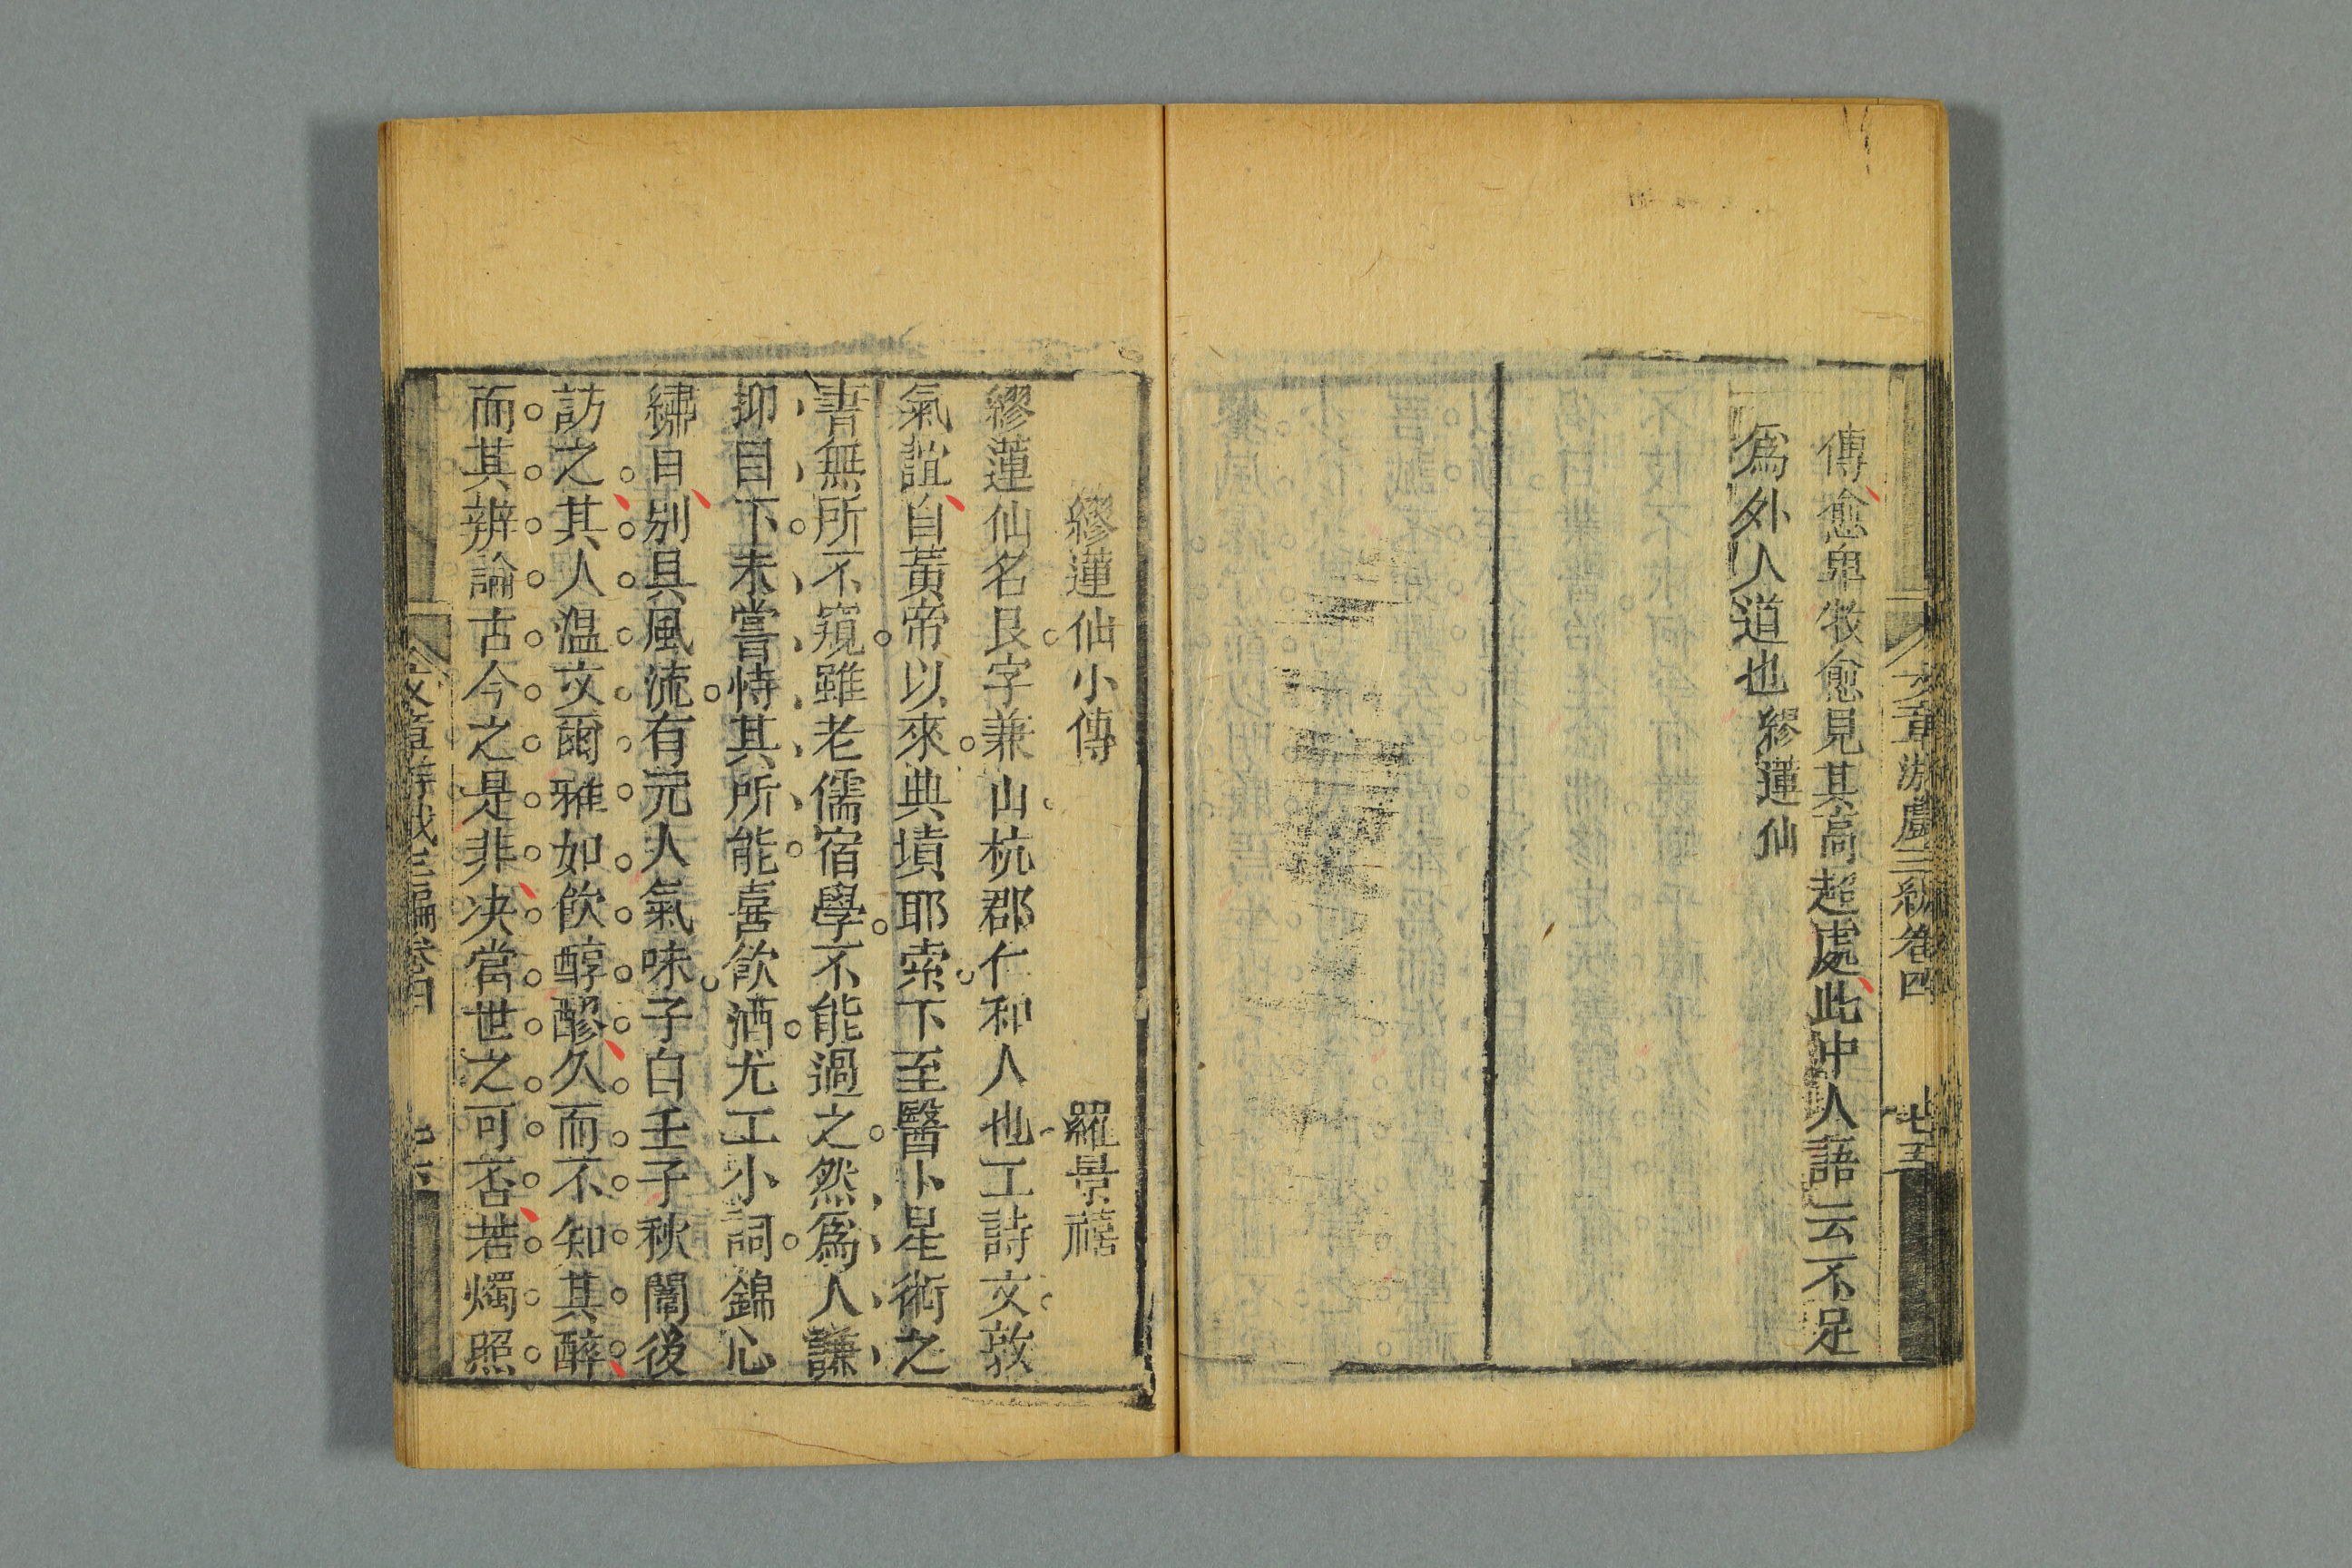 文章游戲三編卷四
七五
傳愈卑牧愈見其高超處此中人語云不足
爲外人道也 繆蓮仙
繆蓮仙小傳 羅景禧
繆蓮仙名艮字兼山杭郡仁和人也工詩文敦
氣誼自黃帝以來典墳耶索下至醫卜星術之
書無所不窺雖老儒宿學不能過之然爲人謙
抑目下未嘗恃其所能喜飲酒尤工小詞錦心
繡口別具風流有元人氣味子白壬子秋闈後
訪之其人温文爾雅如飲醇醪久而不知其醉
而其辨論古今之是非决當世之可否若燭照
文章游戲三編卷四